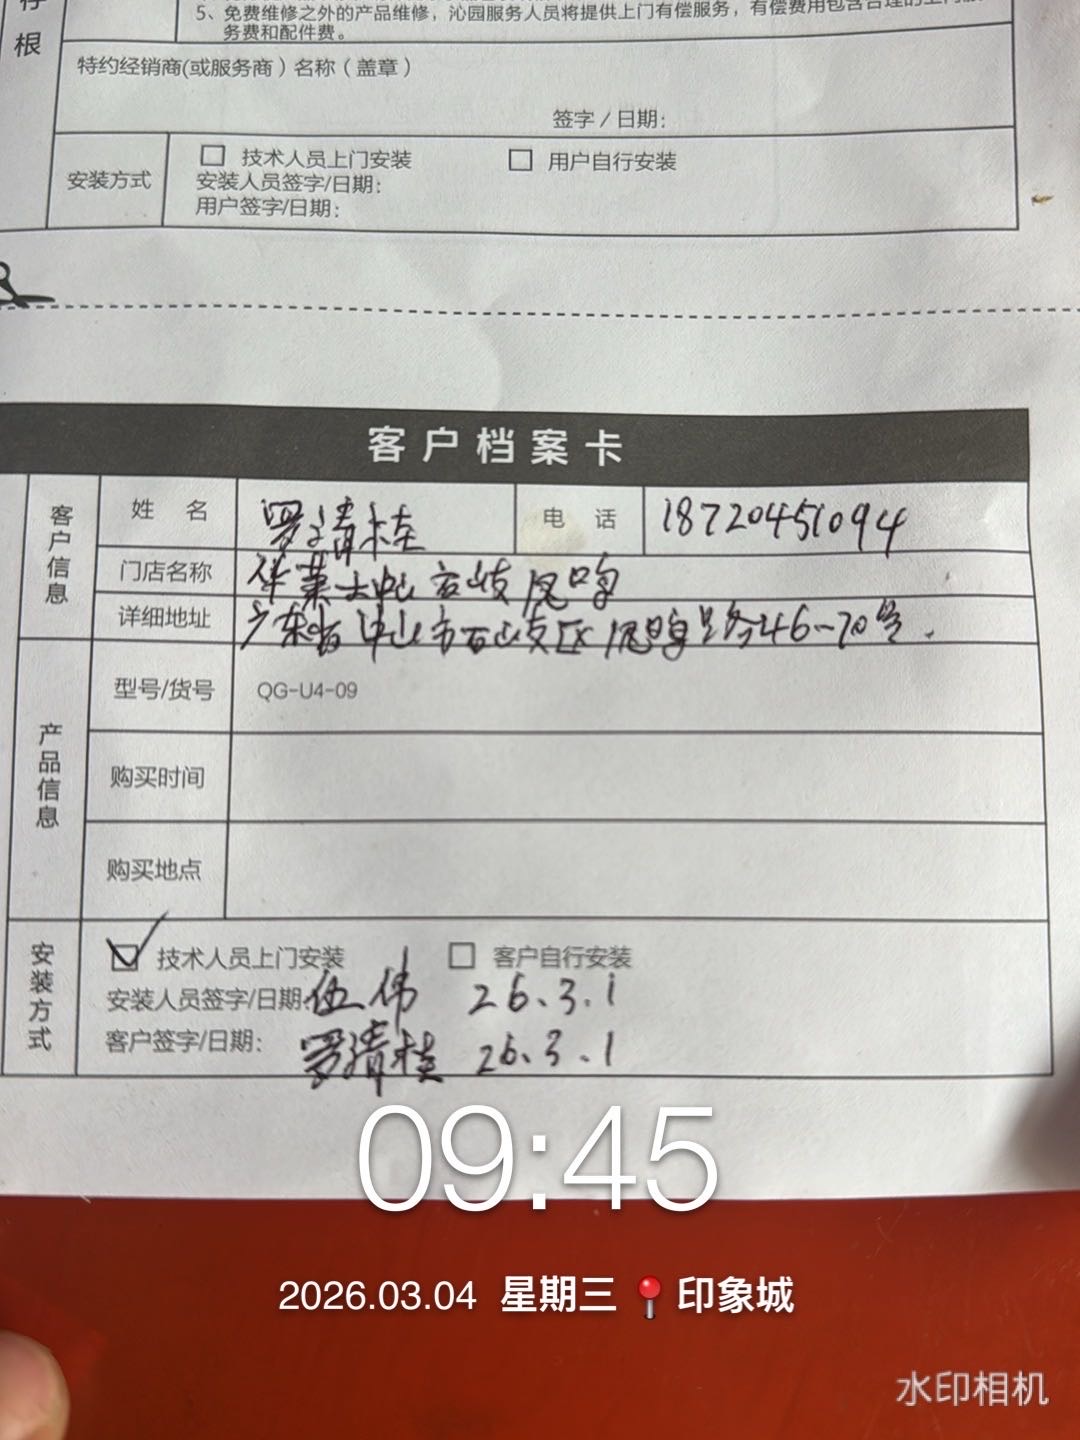 存
根
5、免费维修之外的产品维修，沁园服务人员将提供上门有偿服务，有偿费用包含合理的上门服
务费和配件费。
特约经销商(或服务商)名称（盖章）
签字／日期：
安装方式
技术人员上门安装
用户自行安装
安装人员签字/日期：
用户签字/日期：
客户档案卡
客户信息
姓 名
罗清桂
电 话
18720451094
门店名称
华莱士中山石岐凤鸣
详细地址
广东省中山市石岐区凤鸣路46-70号.
产品信息
型号/货号
QG-U4-09
购买时间
购买地点
安装方式
技术人员上门安装
客户自行安装
安装人员签字/日期：伍伟 26.3.1
客户签字/日期：罗清桂 26.3.1
09:45
2026.03.04 星期三 印象城
水印相机